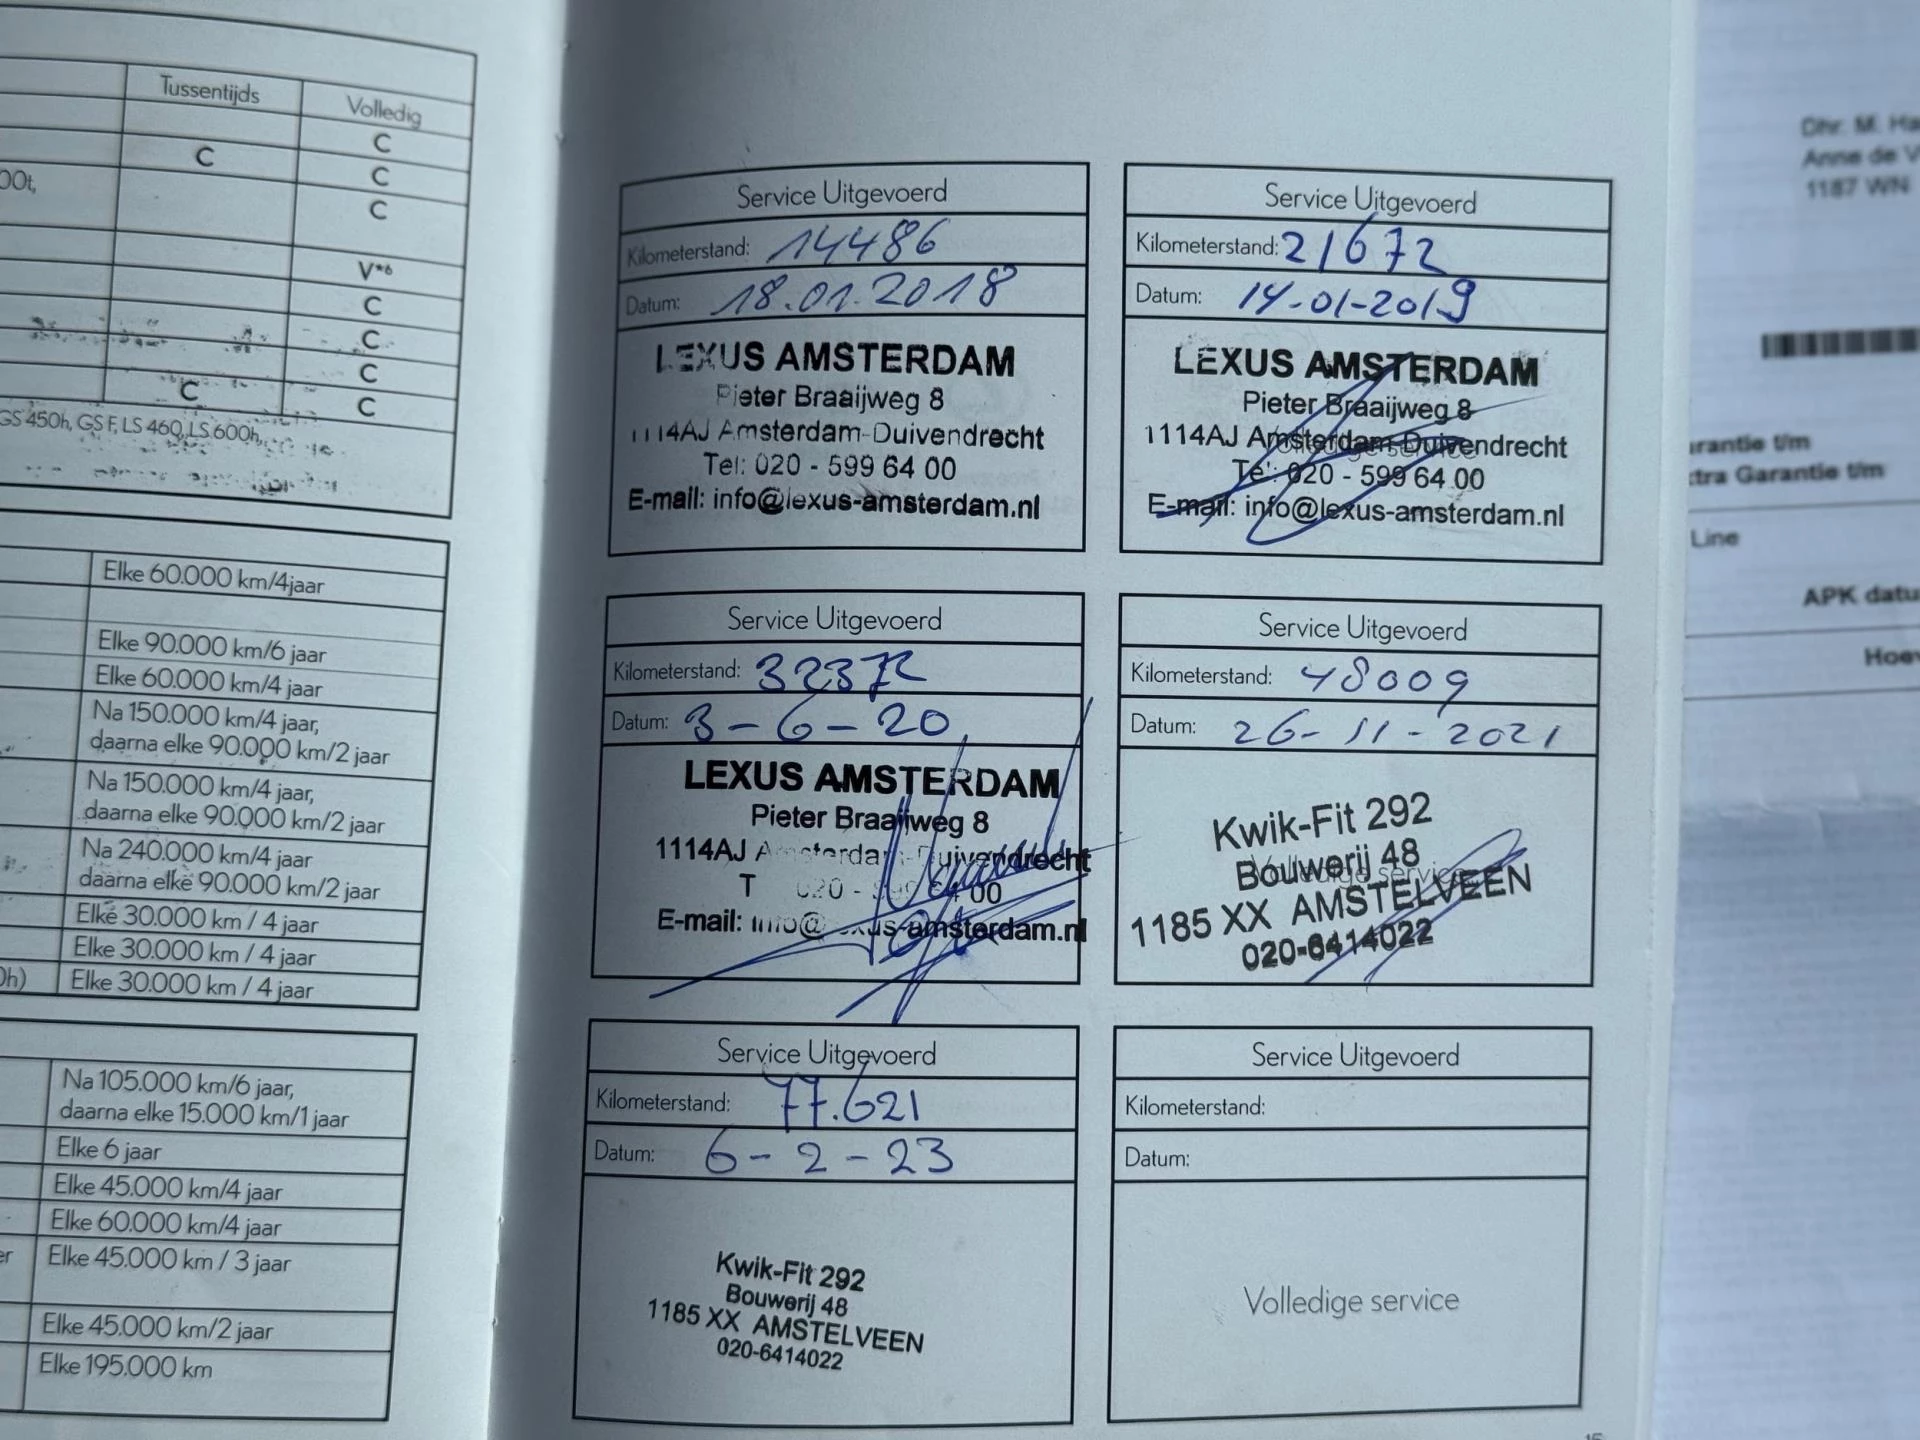 Tussentijds
Volledig
C
C
C
00t,
C
V*6
C
C
C
C
C
GS 450h, GS F, LS 460, LS 600h,
Elke 60.000 km/4jaar
Elke 90.000 km/6 jaar
Elke 60.000 km/4 jaar
Na 150.000 km/4 jaar,
daarna elke 90.000 km/2 jaar
Na 150.000 km/4 jaar,
daarna elke 90.000 km/2 jaar
Na 240.000 km/4 jaar
daarna elke 90.000 km/2 jaar
Elke 30.000 km / 4 jaar
Elke 30.000 km / 4 jaar
0h) Elke 30.000 km / 4 jaar
Na 105.000 km/6 jaar,
daarna elke 15.000 km/1 jaar
Elke 6 jaar
Elke 45.000 km/4 jaar
Elke 60.000 km/4 jaar
er Elke 45.000 km / 3 jaar
Elke 45.000 km/2 jaar
Elke 195.000 km
Service Uitgevoerd
Kilometerstand: 14486
Datum: 18.01.2018
LEXUS AMSTERDAM
Pieter Braaijweg 8
1114AJ Amsterdam-Duivendrecht
Tel: 020 - 599 64 00
E-mail: info@lexus-amsterdam.nl
Service Uitgevoerd
Kilometerstand: 21672
Datum: 14-01-2019
LEXUS AMSTERDAM
Pieter Braaijweg 8
1114AJ Amsterdam-Duivendrecht
Tel: 020 - 599 64 00
E-mail: info@lexus-amsterdam.nl
Service Uitgevoerd
Kilometerstand: 32372
Datum: 3-6-20
LEXUS AMSTERDAM
Pieter Braaijweg 8
1114AJ Amsterdam-Duivendrecht
T 020 - 599 64 00
E-mail: info@lexus-amsterdam.nl
Service Uitgevoerd
Kilometerstand: 48009
Datum: 26-11-2021
Kwik-Fit 292
Bouwerij 48
Volledige service
1185 XX AMSTELVEEN
020-6414022
Service Uitgevoerd
Kilometerstand: 77.621
Datum: 6-2-23
Kwik-Fit 292
Bouwerij 48
1185 XX AMSTELVEEN
020-6414022
Service Uitgevoerd
Kilometerstand:
Datum:
Volledige service
Dhr. M. Ha
Anne de V
1187 WN
arantie t/m
tra Garantie t/m
Line
APK datu
Hoev